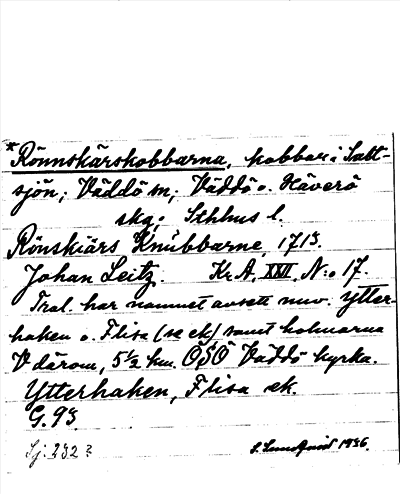 *Rönnskärskobbarna, kobbar i Salt-
sjön; Väddö sn; Väddö o. Häverö
skg; Sthlms l.
Rönskiärs Knubbarne, 1713.
Johan Leitz. Kr. A. XXII, N:o 17.
Trol. har namnet avsett nuv. Ytter-
haken o. Flisa (se ek) samt holmarna
V därom, 5½ km. OSO Väddö kyrka.
Ytterhaken, Flisa ek.
G. 93
Sj. 232?
S. Lundqvist 1936.